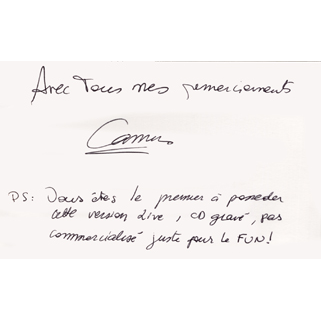 Avec Tous mes remerciements
Camus
PS: Vous êtes le premier à posseder
cette version Live, CD gravé, pas
commercialisé juste pour le FUN!